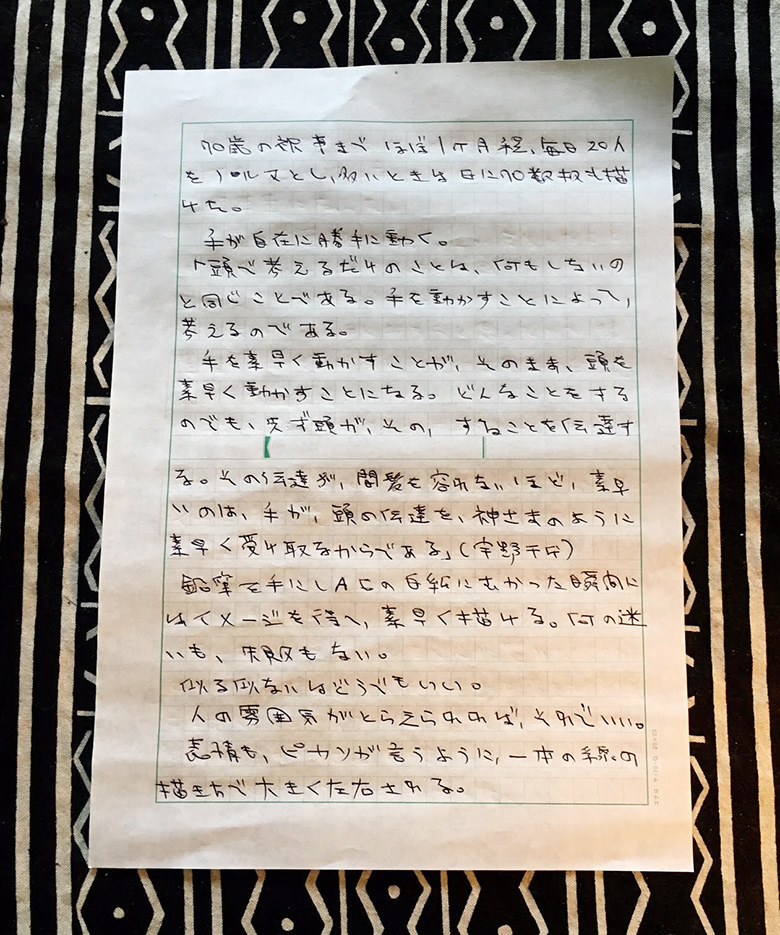 70歳の祝事まで ほぼ1ヶ月程、毎日20人
をノルマとし、多いときは日に70数枚も描
けた。
手が自在に勝手に動く。
「頭で考えるだけのことは、何もしないの
と同じことである。手を動かすことによって、
考えるのである。
手を素早く動かすことが、そのまま、頭を
素早く動かすことになる。どんなことをする
のでも、先ず頭が、その、することを伝達す
る。その伝達が、間髪を容れないほど、素早
いのは、手が、頭の伝達を、神さまのように
素早く受け取るからである」(宇野千代)
鉛筆を手にしA5の白紙にむかった瞬間に
はイメージを待へ、素早く描ける。何の迷
いも、失敗もない。
似る似ないはどうでもいい。
人の雰囲気がとらえられれば、それでいい。
表情も、ピカソが言うように、一本の線の
描き方で大きく左右される。